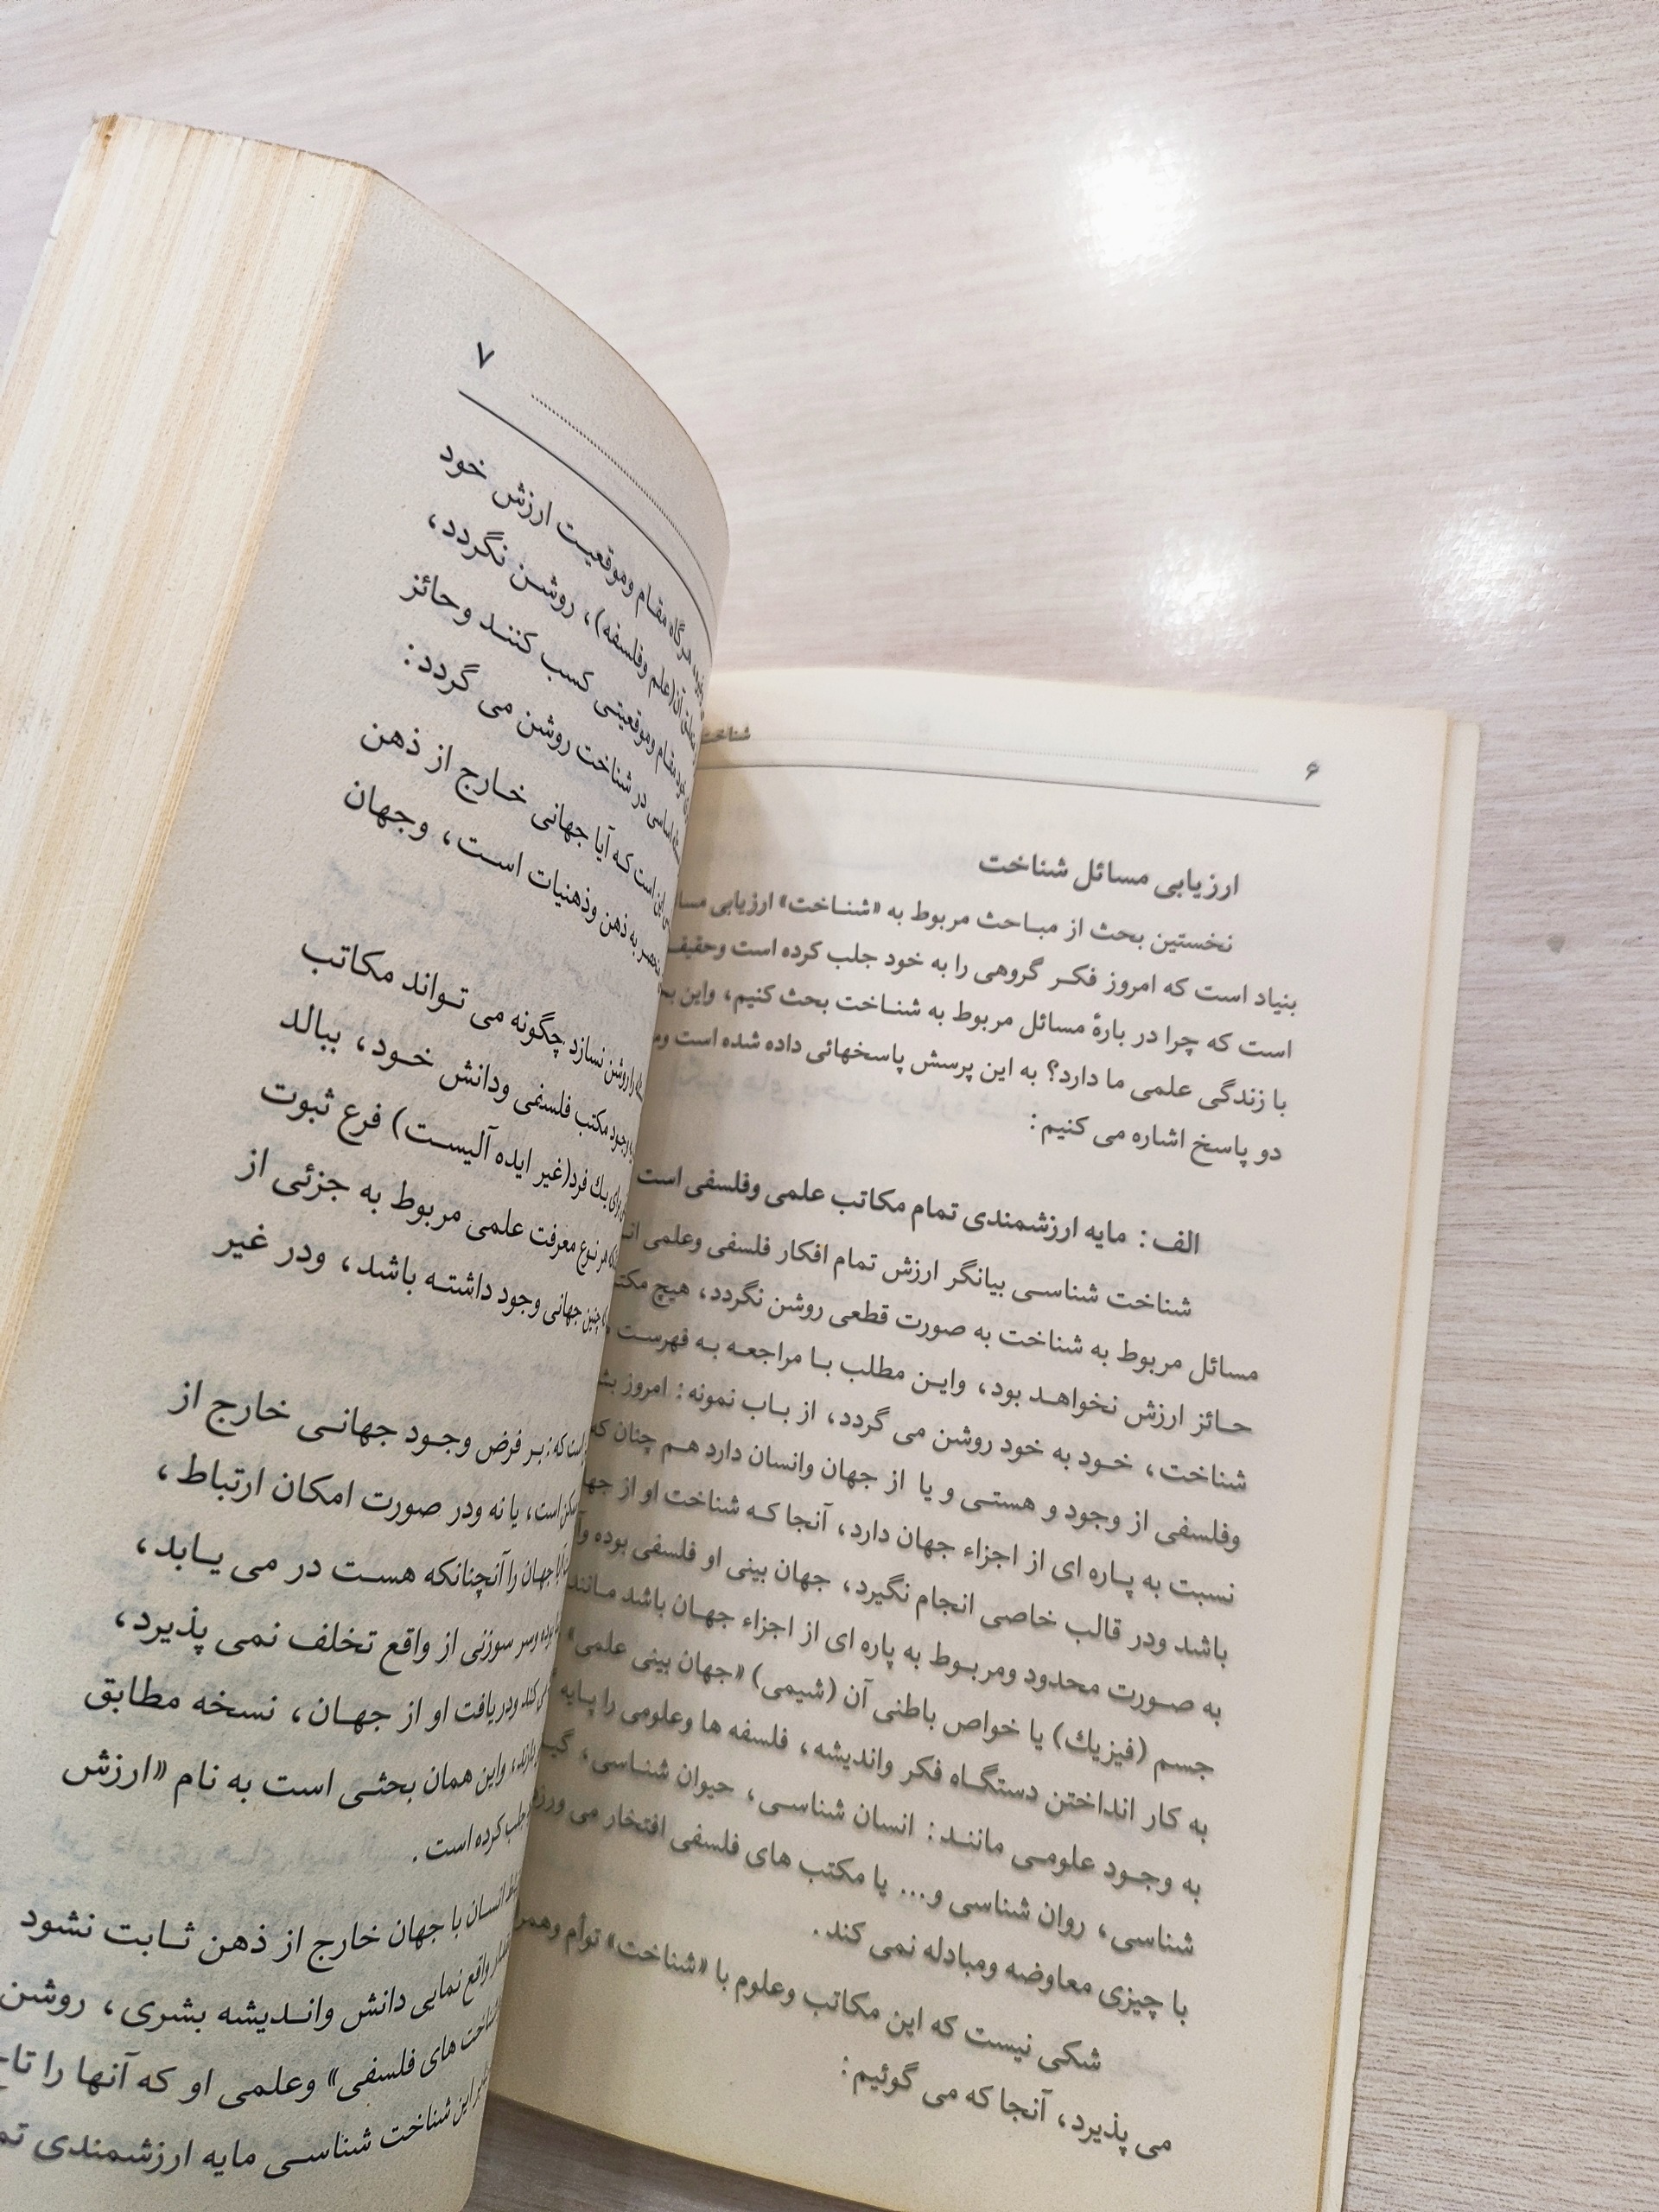 ۶
شناخت
ارزیابی مسائل شناخت
نخستین بحث از مباحث مربوط به «شناخت» ارزیابی
بنیاد است که امروز فکر گروهی را به خود جلب کرده است
است که چرا در بارهٔ مسائل مربوط به شناخت بحث کنیم، واین
با زندگی علمی ما دارد؟ به این پرسش پاسخهائی داده شده است
دو پاسخ اشاره می کنیم:
الف: مایه ارزشمندی تمام مکاتب علمی وفلسفی است
شناخت شناسی بیانگر ارزش تمام افکار فلسفی وعلمی
مسائل مربوط به شناخت به صورت قطعی روشن نگردد، هیچ
حائز ارزش نخواهد بود، واین مطلب با مراجعه به فهرست
شناخت، خود به خود روشن می گردد، از باب نمونه: امروز
وفلسفی از وجود و هستی و یا از جهان وانسان دارد هم چنان که
نسبت به پاره ای از اجزاء جهان دارد، آنجا که شناخت او از
باشد ودر قالب خاصی انجام نگیرد، جهان بینی او فلسفی بوده
به صورت محدود ومربوط به پاره ای از اجزاء جهان باشد مانند
جسم (فیزیك) یا خواص باطنی آن (شیمی) «جهان بینی علمی»
به کار انداختن دستگاه فکر واندیشه، فلسفه ها وعلومی را پایه
به وجود علومی مانند: انسان شناسی، حیوان شناسی،
شناسی، روان شناسی و... یا مکتب های فلسفی افتخار می
با چیزی معاوضه ومبادله نمی کند.
شکی نیست که این مکاتب وعلوم با «شناخت» توأم
می پذیرد، آنجا که می گوئیم:
۷
هرگاه مقام وموقعیت ارزش خود
(علم وفلسفه)، روشن نگردد،
مقام وموقعیتی کسب کنند وحائز
اساسی در شناخت روشن می گردد:
این است که آیا جهانی خارج از ذهن
به ذهن وذهنیات است، وجهان
را روشن نسازد چگونه می تواند مکاتب
وجود مکتب فلسفی ودانش خود، ببالد
یك فرد(غیر ایده آلیست) فرع ثبوت
هر نوع معرفت علمی مربوط به جزئی از
چنین جهانی وجود داشته باشد، ودر غیر
است که: بر فرض وجود جهانی خارج از
است، یا نه ودر صورت امکان ارتباط،
جهان را آنچنانکه هست در می یابد،
بوده وسر سوزنی از واقع تخلف نمی پذیرد،
ودریافت او از جهان، نسخه مطابق
واین همان بحثی است به نام «ارزش
کرده است.
انسان با جهان خارج از ذهن ثابت نشود
واقع نمایی دانش واندیشه بشری، روشن
شناخت های فلسفی» وعلمی او که آنها را
این شناخت شناسی مایه ارزشمندی